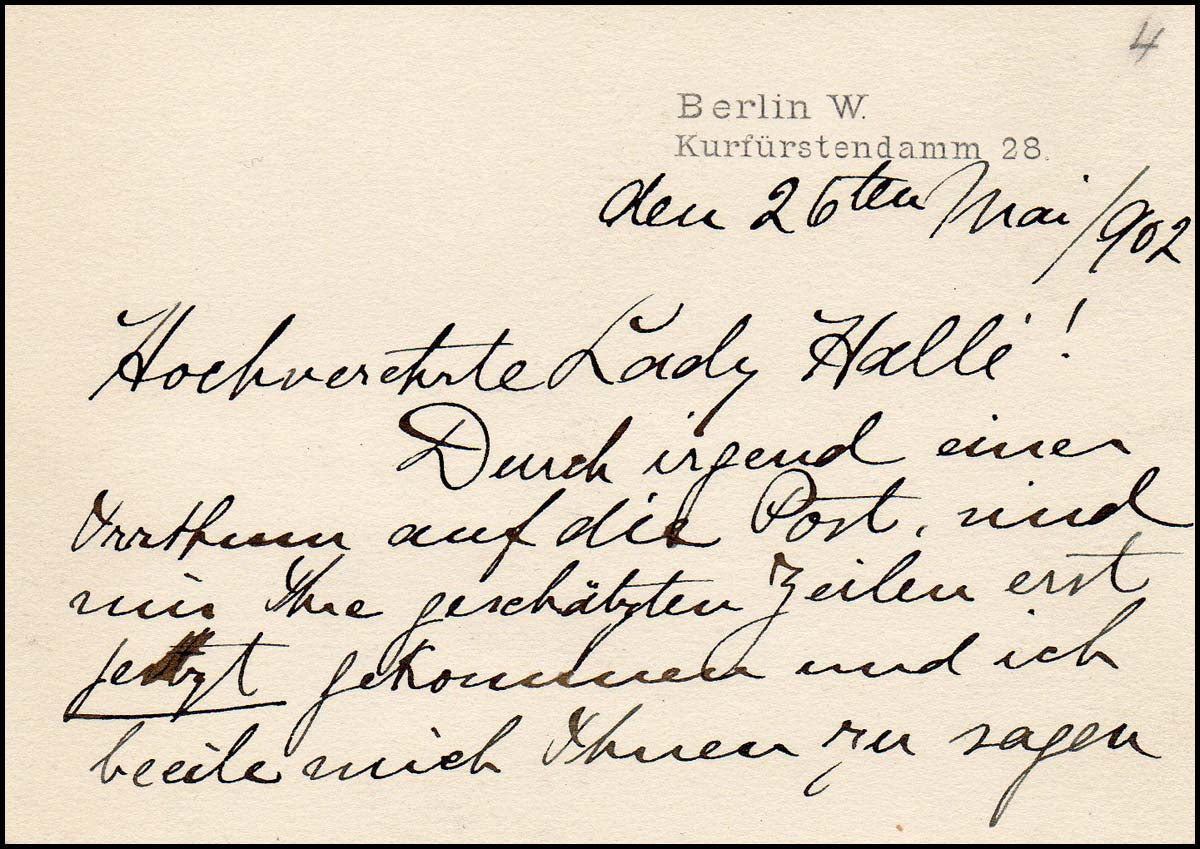 4
Berlin W.
Kurfürstendamm 28.
den 26ten Mai /902
Hochverehrte Lady Hallé!
Durch irgend einen
Irrthum auf die Post, sind
mir Ihre geschätzten Zeilen erst
jetzt gekommen und ich
beeile mich Ihnen zu sagen